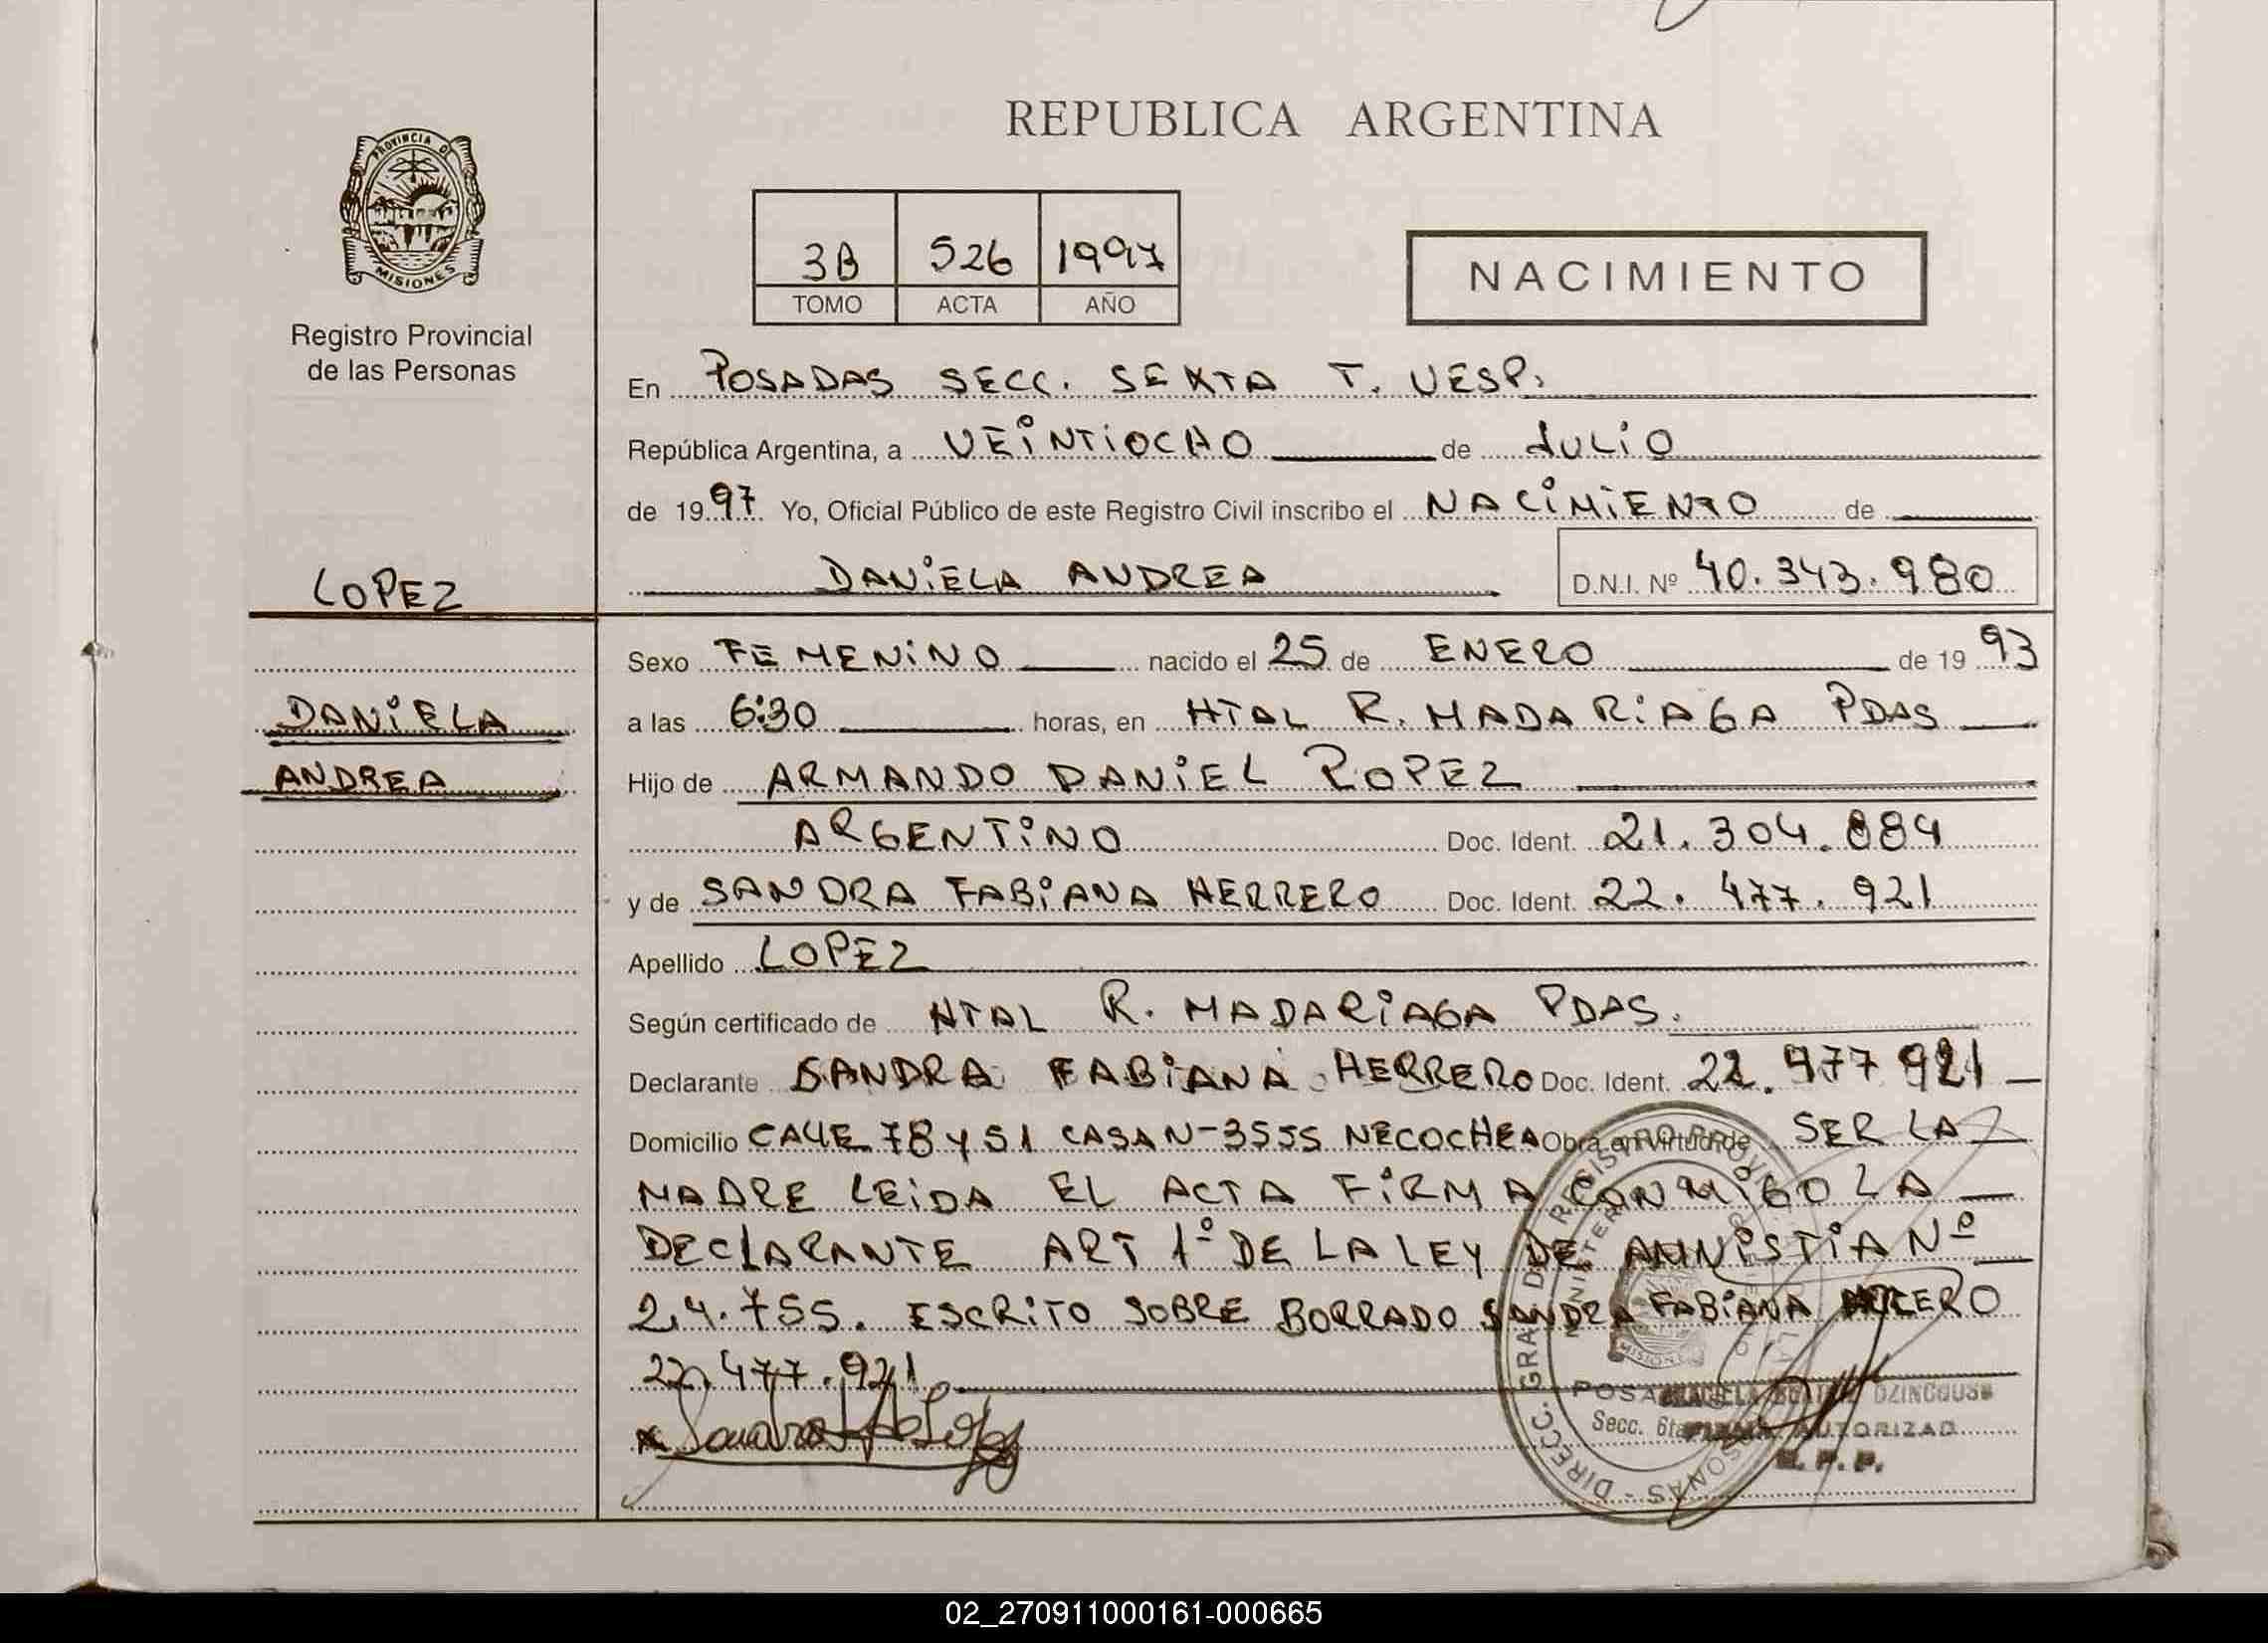 REPUBLICA ARGENTINA
PROVINCIA D
MISIONES
Registro Provincial
de las Personas
3B 526 1997
TOMO ACTA AÑO
NACIMIENTO
En POSADAS SECC. SEXTA T. VESP.
República Argentina, a VEINTIOCHO de JULIO
de 1997 Yo, Oficial Público de este Registro Civil inscribo el NACIMIENTO de
LOPEZ
DANIELA ANDREA D.N.I. Nº 40.343.980
Sexo FEMENINO nacido el 25 de ENERO de 1993
DANIELA
a las 6:30 horas, en HTAL R. MADARIAGA PDAS
ANDREA
Hijo de ARMANDO DANIEL ROPEZ
ARGENTINO Doc. Ident. 21.304.884
y de SANDRA FABIANA HERRERO Doc. Ident. 22.477.921
Apellido LOPEZ
Según certificado de HTAL R. MADARIAGA PDAS.
Declarante SANDRA FABIANA HERRERO Doc. Ident. 22.477 921
Domicilio CALLE 78 Y 51 CASA N-3555 NECOCHEA Obra en virtud de SER LA
MADRE LEIDA EL ACTA FIRMA CONMIGO LA
DECLARANTE ART 1º DE LA LEY DE AMNISTIA Nº
24.755. ESCRITO SOBRE BORRADO SANDRA FABIANA
22.477.921
Secc. 6ta AUTORIZAD
R. P. P.
02_270911000161-000665